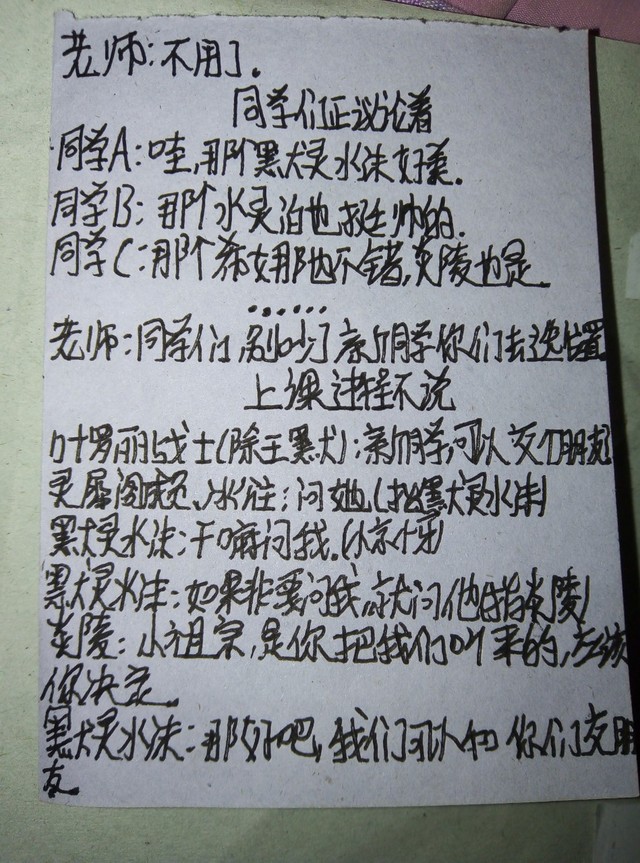 老师：不用了。
同学们正议论着
同学A：哇，那个黑犬灵水洙好美。
同学B：那个水灵泊也挺帅的。
同学C：那个希女那也不错，炎陵也是。
……
老师：同学们，别吵了新同学你们去选位置
上课过程不说
叶罗丽战士(除王默犬)：新同学可以交个朋友
灵犀阁成员、水洙：问她(指黑犬灵水洙)
黑犬灵水洙：干嘛问我。(惊讶)
黑犬灵水洙：如果非要问我，就问他(指炎陵)
炎陵：小祖宗，是你把我们叫来的，应该
你决定。
黑犬灵水洙：那好吧，我们可以和你们交朋
友